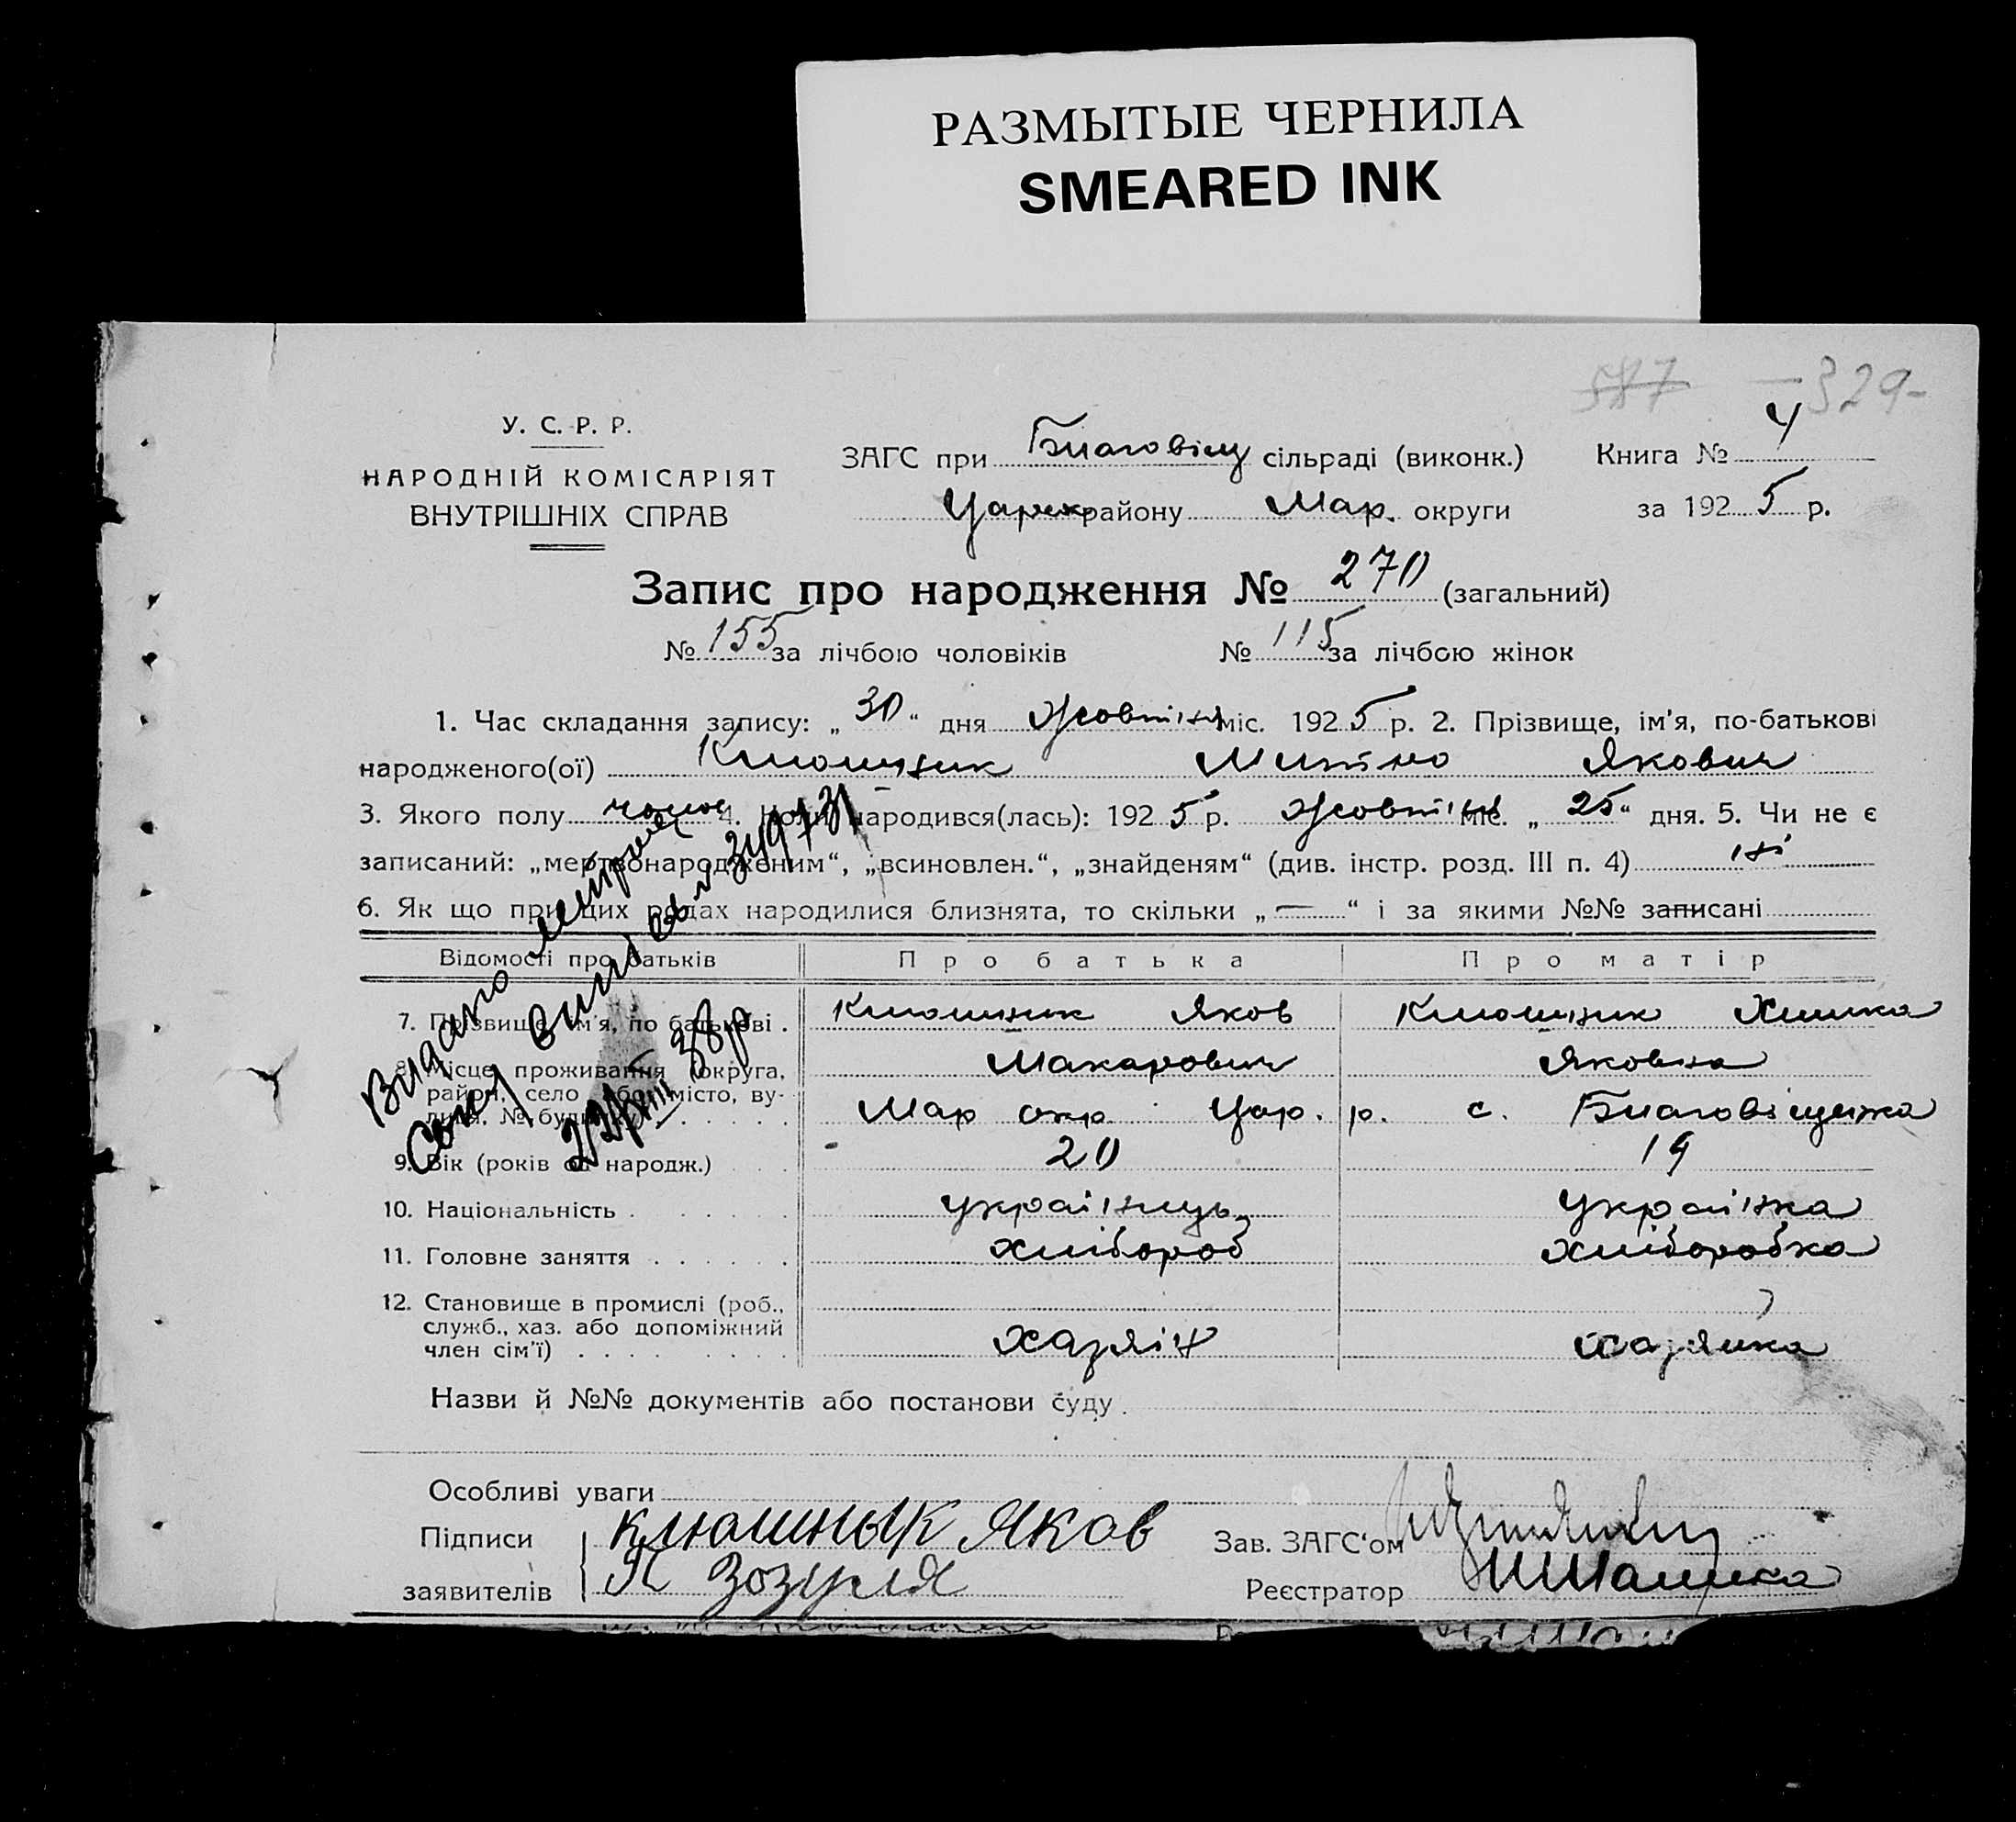 РАЗМЫТЫЕ ЧЕРНИЛА
SMEARED INK
587 329-
У. С. Р. Р.
НАРОДНІЙ КОМІСАРІЯТ
ВНУТРІШНІХ СПРАВ
ЗАГС при Благовіщ сільраді (виконк.) Книга № 4
Царек району Мар. округи за 1925 р.
Запис про народження № 270 (загальний)
№ 155 за лічбою чоловіків № 115 за лічбою жінок
1. Час складання запису: „30“ дня Жовтня міс. 1925 р. 2. Прізвище, ім'я, по-батькові
народженого(ої) Клюшник Митро Якович
3. Якого полу чолов 4. Коли народився(лась): 1925 р. Жовтня міс. „25“ дня. 5. Чи не є
записаний: „мертвонародженим“, „всиновлен.“, „знайденям“ (див. інстр. розд. III п. 4) ні
6. Як що при цих родах народилися близнята, то скільки „—“ і за якими №№ записані
Відомості про батьків Про батька Про матір
7. Прізвище, ім'я, по батькові . Клюшник Яков Клюшник Химка
Макарович Яковна
8. Місце проживання (округа,
район, село або місто, ву-
лиця, № будинку) Мар окр. Цар. р. с. Благовіщенка
9. Вік (років од народж.) 20 19
10. Національність українець українка
11. Головне заняття хлібороб хліборобка
12. Становище в промислі (роб.,
служб., хаз. або допоміжний
член сім'ї) хазяїн хазяйка
Видано метрич
23/VIII 38р
Назви й №№ документів або постанови суду
Особливі уваги
Підписи клюшнык Яков Зав. ЗАГС'ом
заявителів П Зозуля Реєстратор